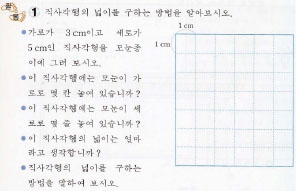 활동
1 직사각형의 넓이를 구하는 방법을 알아보시오.
1 cm
1 cm
가로가 3 cm이고 세로가
5 cm인 직사각형을 모눈종
이에 그려 보시오.
이 직사각형에는 모눈이 가
로로 몇 칸 놓여 있습니까?
이 직사각형에는 모눈이 세
로로 몇 줄 놓여 있습니까?
이 직사각형의 넓이는 얼마
라고 생각합니까?
직사각형의 넓이를 구하는
방법을 말하여 보시오.